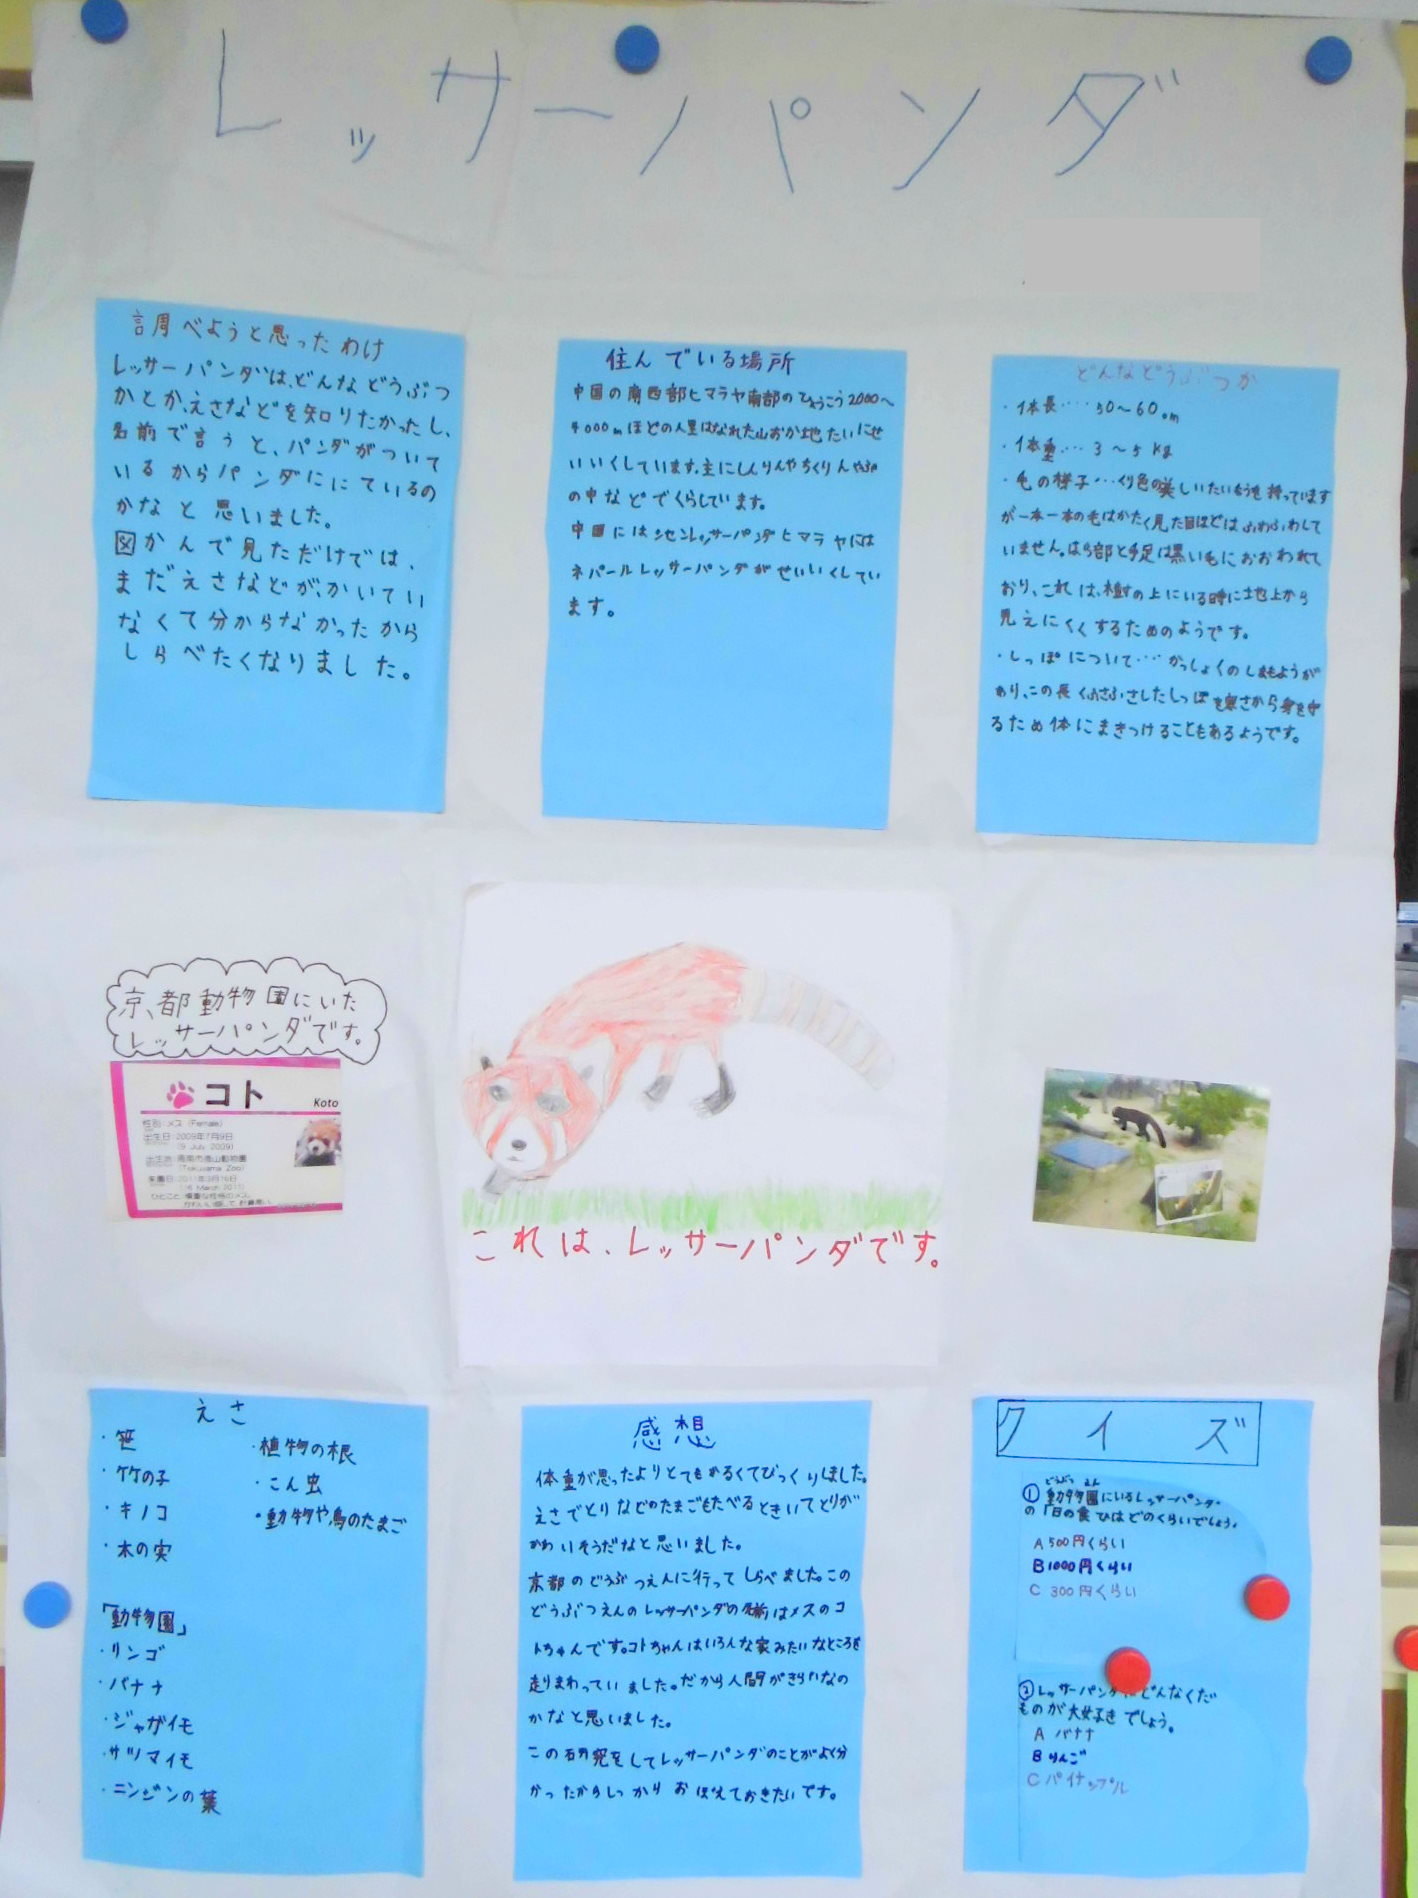 レッサーパンダ
調べようと思ったわけ
レッサーパンダは、どんなどうぶつ
かとか、えさなどを知りたかったし、
名前で言うと、パンダがついて
いるからパンダににているの
かなと思いました。
図かんで見ただけでは、
まだえさなどが、かいてい
なくて分からなかったから
しらべたくなりました。
住んでいる場所
中国の南西部ヒマラヤ南部のひょうこう2000〜
4000mほどの人里はなれた山おか地たいにせ
いいくしています。主にしんりんやちくりんやぶ
の中などでくらしています。
中国にはシセンレッサーパンダヒマラヤには
ネパールレッサーパンダがせいいくしてい
ます。
どんなどうぶつか
・体長‥‥50〜60cm
・体重‥‥3〜5kg
・毛の様子‥‥くり色の美しいたいもうを持っています
が一本一本の毛はかたく見た目ほどはふわふわして
いません。はら部と手足は黒い毛におおわれて
おり、これは、樹の上にいる時に地上から
見えにくくするためのようです。
・しっぽについて‥‥かっしょくのしまもようが
あり、この長くふさふさしたしっぽを寒さから身を守
るため体にまきつけることもあるようです。
京都動物園にいた
レッサーパンダです。
コト
Koto
性別:メス (Female)
出生日:2009年7月9日
(9 July 2009)
出生地:周南市徳山動物園
(Tokuyama Zoo)
来園日:2011年3月16日
(16 March 2011)
ひとこと 慎重な性格のメス。
これは、レッサーパンダです。
えさ
・笹
・竹の子
・キノコ
・木の実
・植物の根
・こん虫
・動物や鳥のたまご
「動物園」
・リンゴ
・バナナ
・ジャガイモ
・サツマイモ
・ニンジンの葉
感想
体重が思ったよりとてもかるくてびっくりしました。
えさでとりなどのたまごもたべるときいてとりが
かわいそうだなと思いました。
京都のどうぶつえんに行ってしらべました。この
どうぶつえんのレッサーパンダの名前はメスのコ
トちゃんです。コトちゃんはいろんな家みたいなところを
走りまわっていました。だから人間がきらいなの
かなと思いました。
この研究をしてレッサーパンダのことがよく分
かったからしっかりおぼえておきたいです。
クイズ
どうぶつえん
①動物園にいるレッサーパンダ
の1日の食ひはどのくらいでしょう。
A 500円くらい
B 1000円くらい
C 300円くらい
②レッサーパンダはどんなくだ
ものが大好きでしょう。
A バナナ
B りんご
C パイナップル